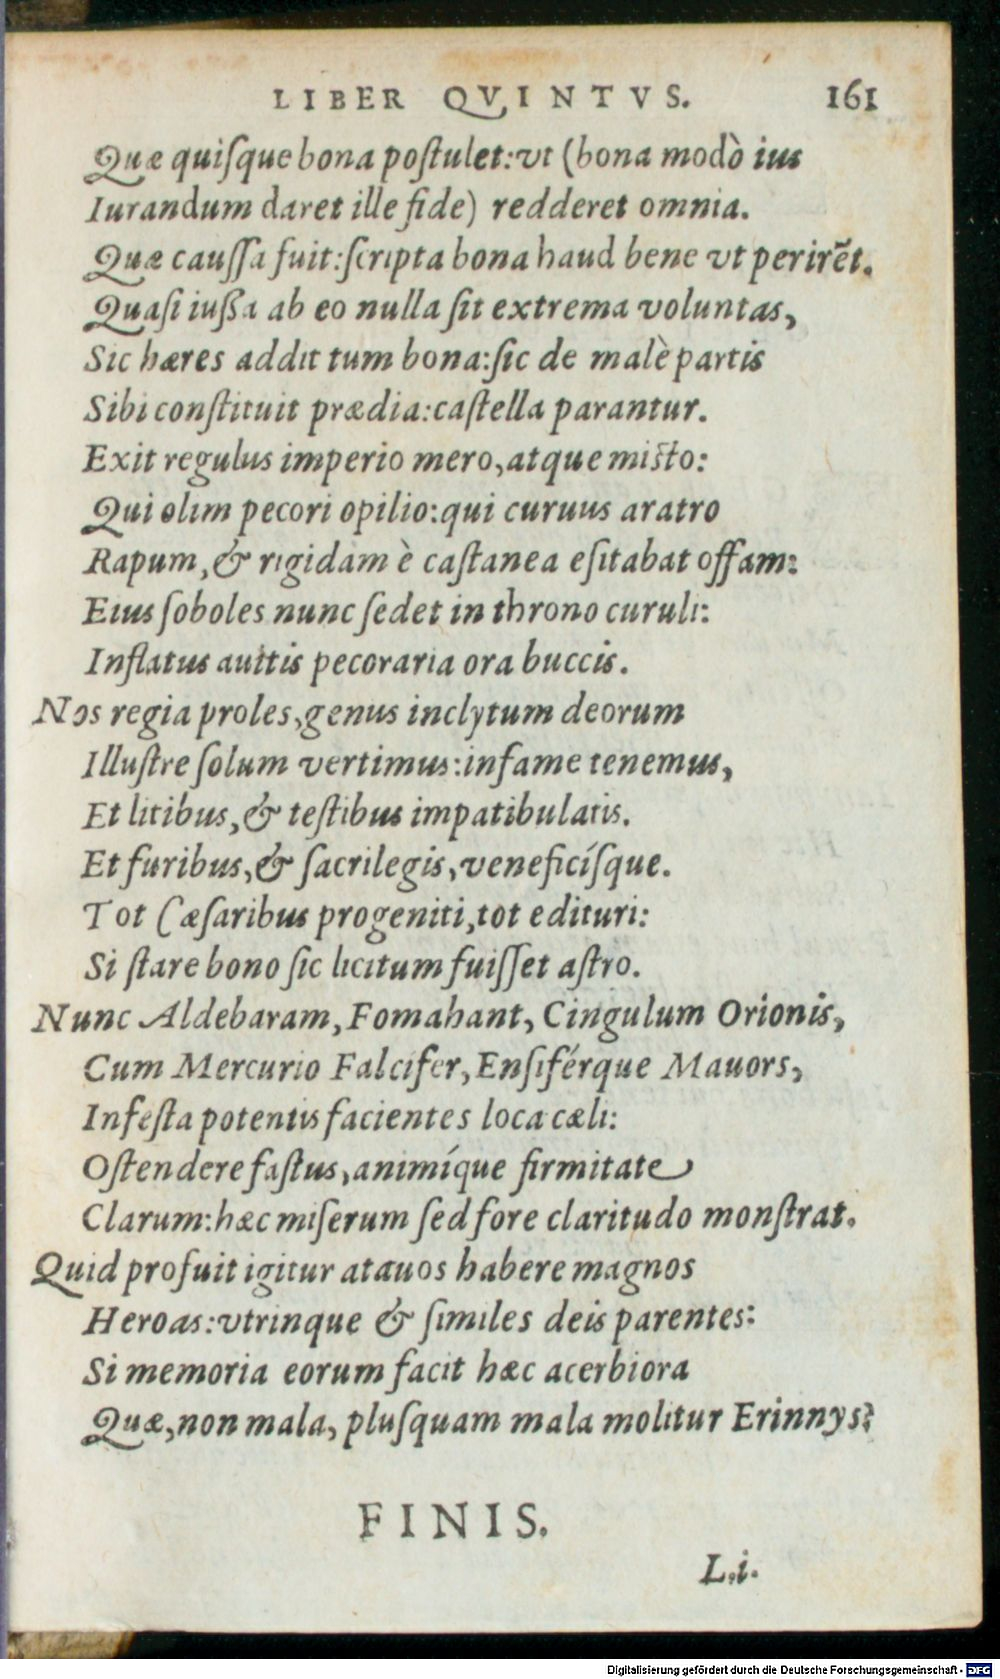 LIBER QVINTVS. 161
Quæ quiſque bona poſtulet: vt (bona modò ius
Iurandum daret ille fide) redderet omnia.
Quæ cauſſa fuit: ſcripta bona haud bene vt perirēt.
Quaſi iuſſa ab eo nulla ſit extrema voluntas,
Sic hæres addit tum bona: ſic de malè partis
Sibi conſtituit prædia: caſtella parantur.
Exit regulus imperio mero, atque miſto:
Qui olim pecori opilio: qui curuus aratro
Rapum, & rigidam è caſtanea eſitabat offam:
Eius ſoboles nunc ſedet in throno curuli:
Inflatus auitis pecoraria ora buccis.
Nos regia proles, genus inclytum deorum
Illuſtre ſolum vertimus: infame tenemus,
Et litibus, & teſtibus impatibulatis.
Et furibus, & ſacrilegis, veneficíſque.
Tot Cæſaribus progeniti, tot edituri:
Si ſtare bono ſic licitum fuiſſet aſtro.
Nunc Aldebaram, Fomahant, Cingulum Orionis,
Cum Mercurio Falcifer, Enſiférque Mauors,
Infeſta potentis facientes loca cæli:
Oſtendere faſtus, animíque firmitate
Clarum: hæc miſerum ſed fore claritudo monſtrat.
Quid profuit igitur atauos habere magnos
Heroas: vtrinque & ſimiles deis parentes:
Si memoria eorum facit hæc acerbiora
Quæ, non mala, pluſquam mala molitur Erinnys?
FINIS.
L.i.
Digitalisierung gefördert durch die Deutsche Forschungsgemeinschaft - DFG